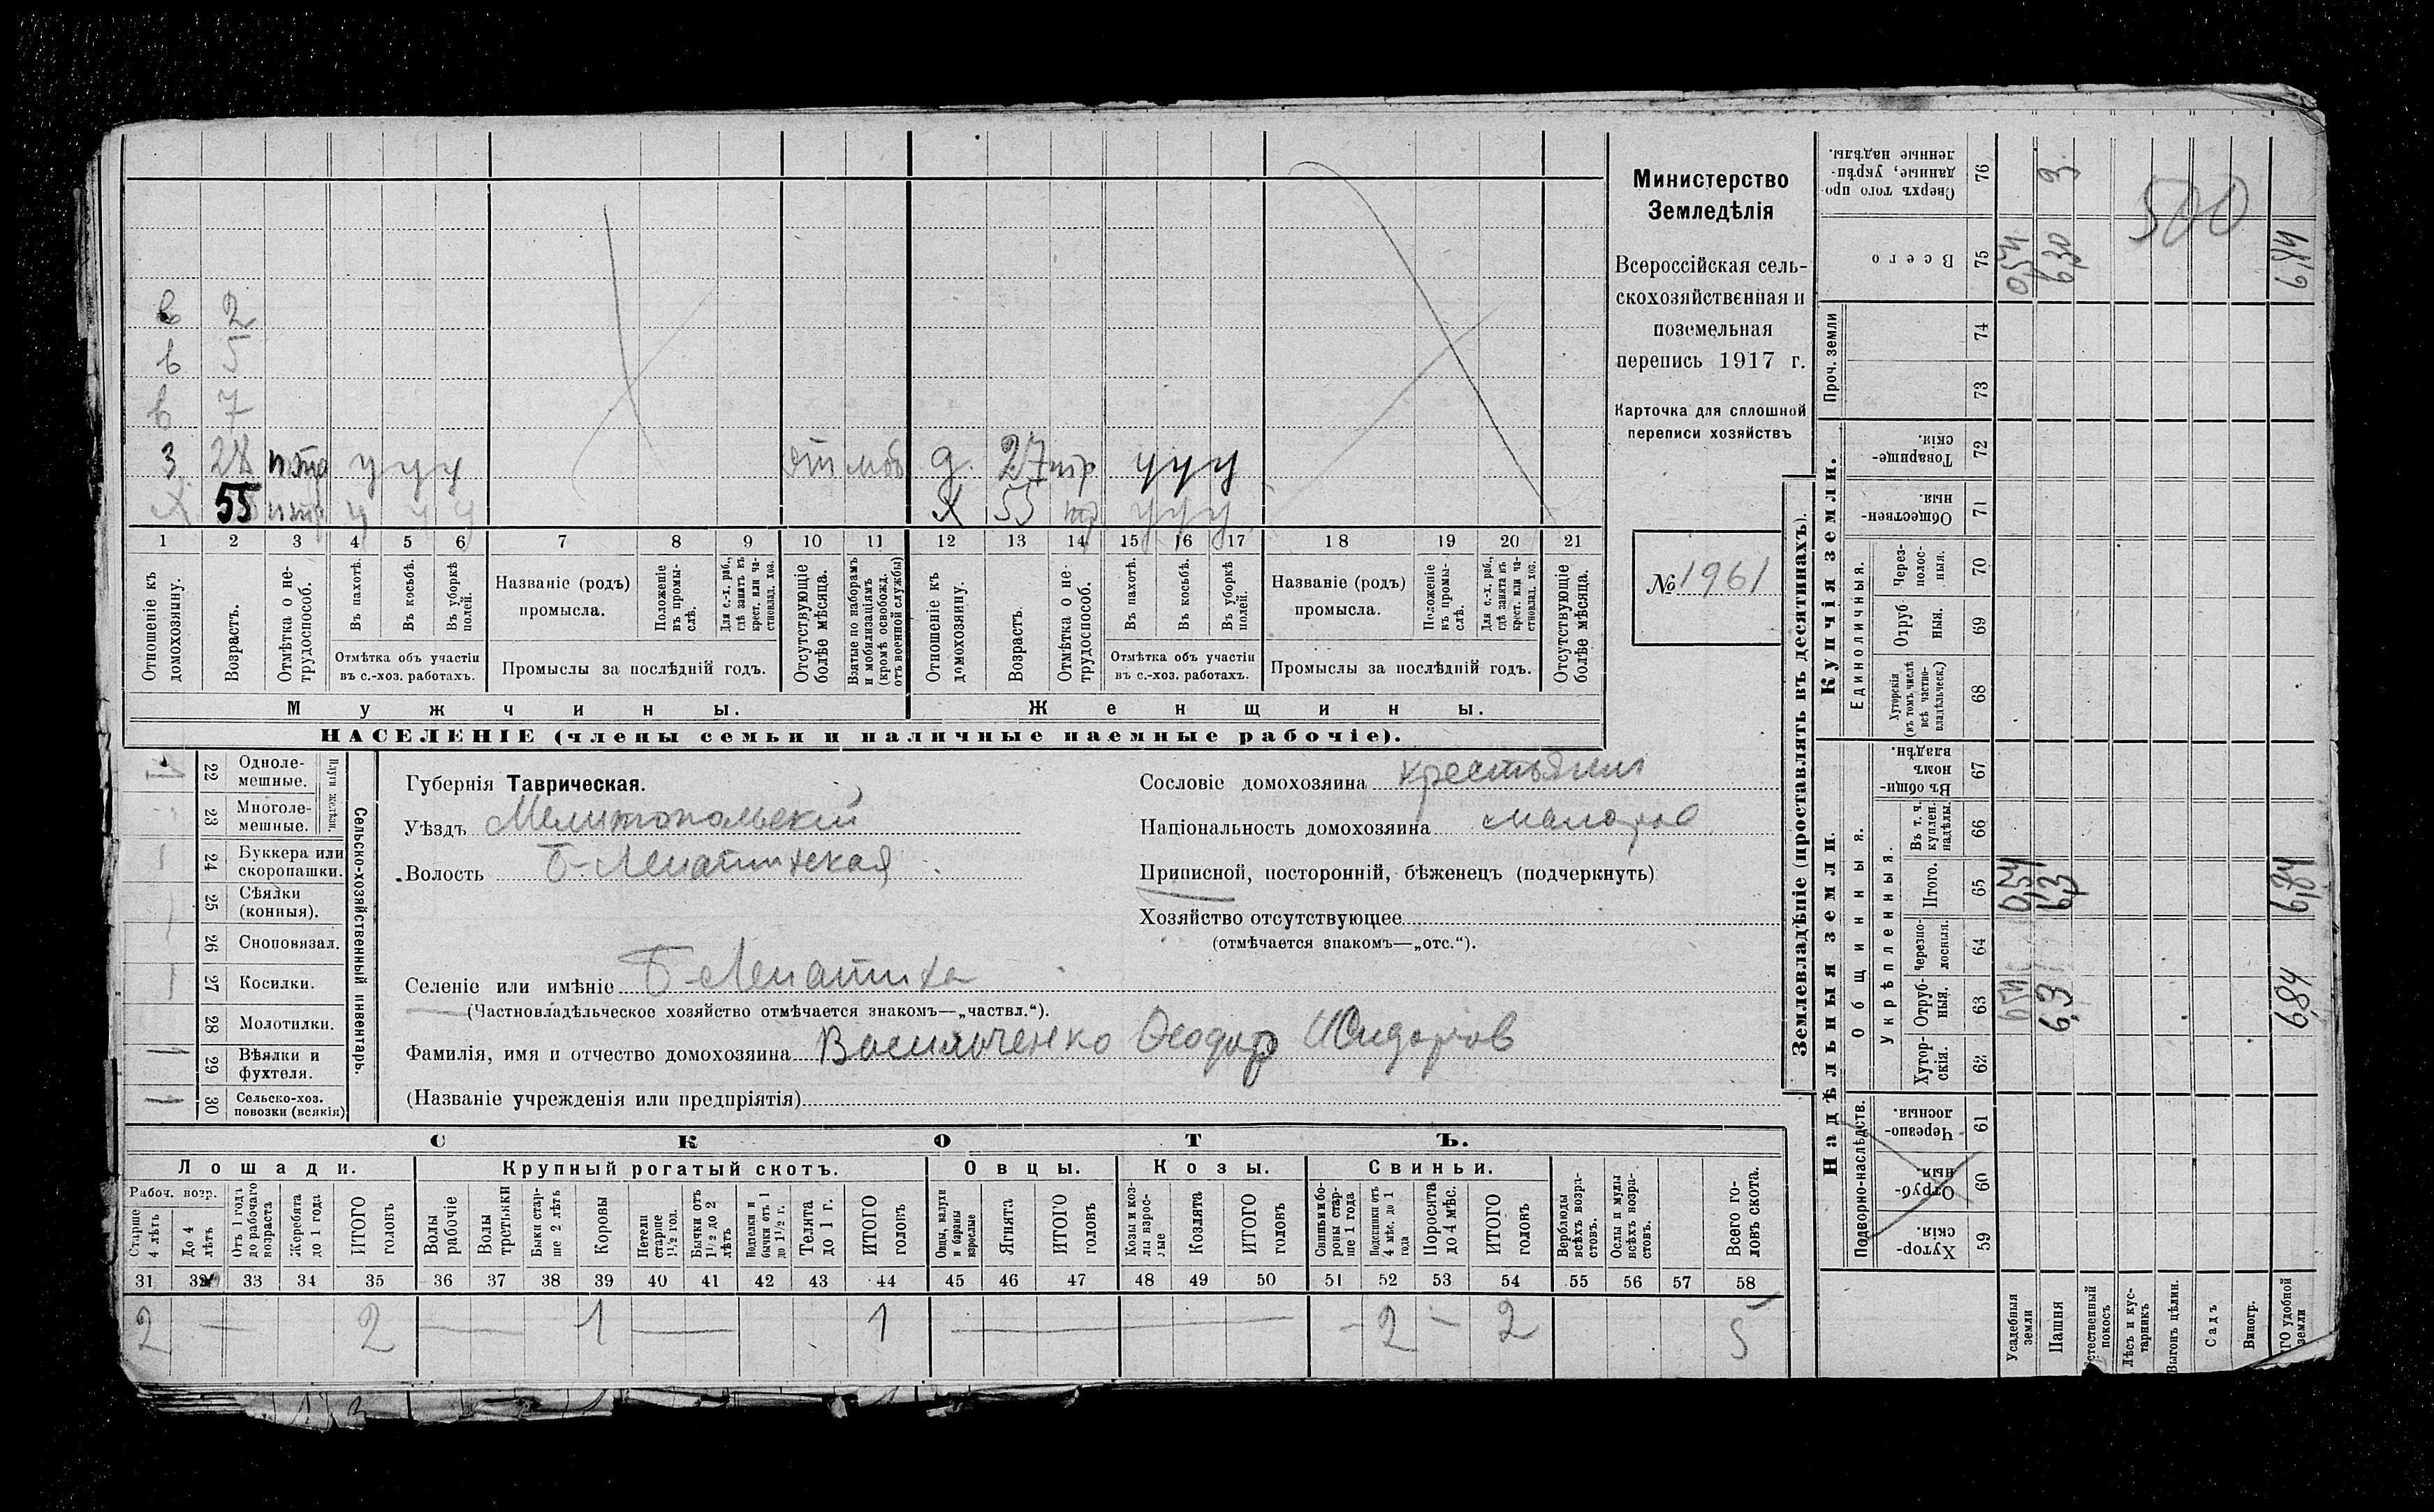 в 2
в 5
в 7
З 28 у у у д. 27 у у у
Х 55 у у у Х 55 у у у
1 2 3 4 5 6 7 8 9 10 11 12 13 14 15 16 17 18 19 20 21
Отношеніе къ домохозяину.
Возрастъ.
Отмѣтка о не-трудоспособ.
Въ пахотѣ.
Въ косьбѣ.
Въ уборкѣ полей.
Отмѣтка объ участіи
въ с.-хоз. работахъ.
Названіе (родъ)
промысла.
Положеніе въ промы-слѣ.
Для с.-х. раб., гдѣ занятъ въ крест. или ча-стновлад. хоз.
Промыслы за послѣдній годъ.
Отсутствующіе болѣе мѣсяца.
Взятые по наборамъ и мобилизаціямъ (кромѣ освобожд. отъ военной службы)
Отношеніе къ домохозяину.
Возрастъ.
Отмѣтка о не-трудоспособ.
Въ пахотѣ.
Въ косьбѣ.
Въ уборкѣ полей.
Отмѣтка объ участіи
въ с.-хоз. работахъ.
Названіе (родъ)
промысла.
Положеніе въ промы-слѣ.
Для с.-х. раб., гдѣ занята въ крест. или ча-стновлад. хоз.
Промыслы за послѣдній годъ.
Отсутствующіе болѣе мѣсяца.
Мужчины.
Женщины.
НАСЕЛЕНІЕ (члены семьи и наличные наемные рабочіе).
Министерство
Земледѣлія
Всероссійская сель-
скохозяйственная и
поземельная
перепись 1917 г.
Карточка для сплошной
переписи хозяйствъ
№ 1961
22 Одноле-мешные.
23 Многоле-мешные.
Плуги желѣзн.
24 Буккера или скоропашки.
25 Сѣялки (конныя).
26 Сноповязал.
27 Косилки.
28 Молотилки.
29 Вѣялки и фухтеля.
30 Сельско-хоз. повозки (всякія)
Сельско-хозяйственный инвентарь.
Губернія Таврическая.
Уѣздъ Мелитопольскій
Волость Б-Лепатихская
Селеніе или имѣніе Б-Лепатиха
(Частновладѣльческое хозяйство отмѣчается знакомъ—„частвл.“).
Фамилія, имя и отчество домохозяина Васильченко Феодор Исидоров
(Названіе учрежденія или предпріятія)
Сословіе домохозяина крестьянин
Національность домохозяина малорос
Приписной, посторонній, бѣженецъ (подчеркнуть)
Хозяйство отсутствующее
(отмѣчается знакомъ—„отс.“).
СКОТЪ.
Лошади. Крупный рогатый скотъ. Овцы. Козы. Свиньи.
Рабоч. возр.
Старше 4 лѣтъ
До 4 лѣтъ
Отъ 1 года до рабочаго возраста
Жеребята до 1 года
ИТОГО головъ
Волы рабочіе
Волы третьяки
Быки стар-ше 2 лѣтъ
Коровы
Нетели старше 1½ год.
Бычки отъ 1½ до 2 лѣтъ
Подтелки и бычки отъ 1 до 1½ г.
Телята до 1 г.
ИТОГО головъ
Овцы, валухи и бараны взрослые
Ягнята
ИТОГО головъ
Козы и коз-лы взрос-лые
Козлята
ИТОГО головъ
Свиньи и бо-ровы стар-ше 1 года
Подсвинки отъ 4 мѣс. до 1 года
Поросята до 4 мѣс.
ИТОГО головъ
Верблюды всѣхъ возра-стовъ.
Ослы и мулы всѣхъ возра-стовъ.
Всего го-ловъ скота.
31 32 33 34 35 36 37 38 39 40 41 42 43 44 45 46 47 48 49 50 51 52 53 54 55 56 57 58
2 — 2 — 1 — 1 — - 2 - 2 5
Землевладѣніе (проставлять въ десятинахъ).
Надѣльныя земли.
Купчія земли.
Проч. земли
Подворно-наслѣдств.
Общинныя.
Укрѣпленныя.
Единоличныя.
Сверхъ того про-данные, укрѣп-ленные надѣлы. 76
Всего 75
74
73
Товарище-скія. 72
Обществен-ныя. 71
Через-полос-ныя. 70
Отруб-ныя. 69
Хуторскія (въ томъ числѣ всѣ частно-владѣльческ.) 68
Въ общин-номъ владѣн. 67
Въ т. ч. куплен. надѣлы. 66
Итого. 65
Черезпо-лосныя. 64
Отруб-ныя. 63
Хутор-скія. 62
Черезпо-лосныя. 61
Отруб-ныя. 60
Хутор-скія. 59
Усадебныя земли
Пашня
стественный покосъ
Лѣсъ и кус-тарникъ
Выгонъ цѣлин.
Садъ
Виногр.
ГО удобной земли
3
500
0,54 6,30
0,54 6,3 6,84
6,3 6,84